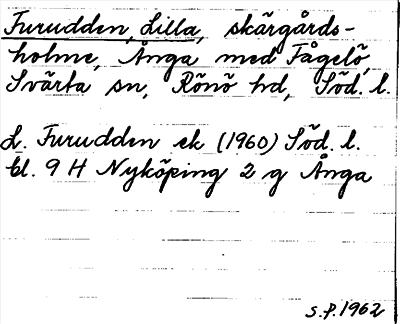 Furudden, Lilla, skärgårds-
holme, Ånga med Fågelö,
Svärta sn, Rönö hd, Söd. l.
L. Furudden ek (1960) Söd. l.
bl. 9 H Nyköping 2 g Ånga
S.P. 1962